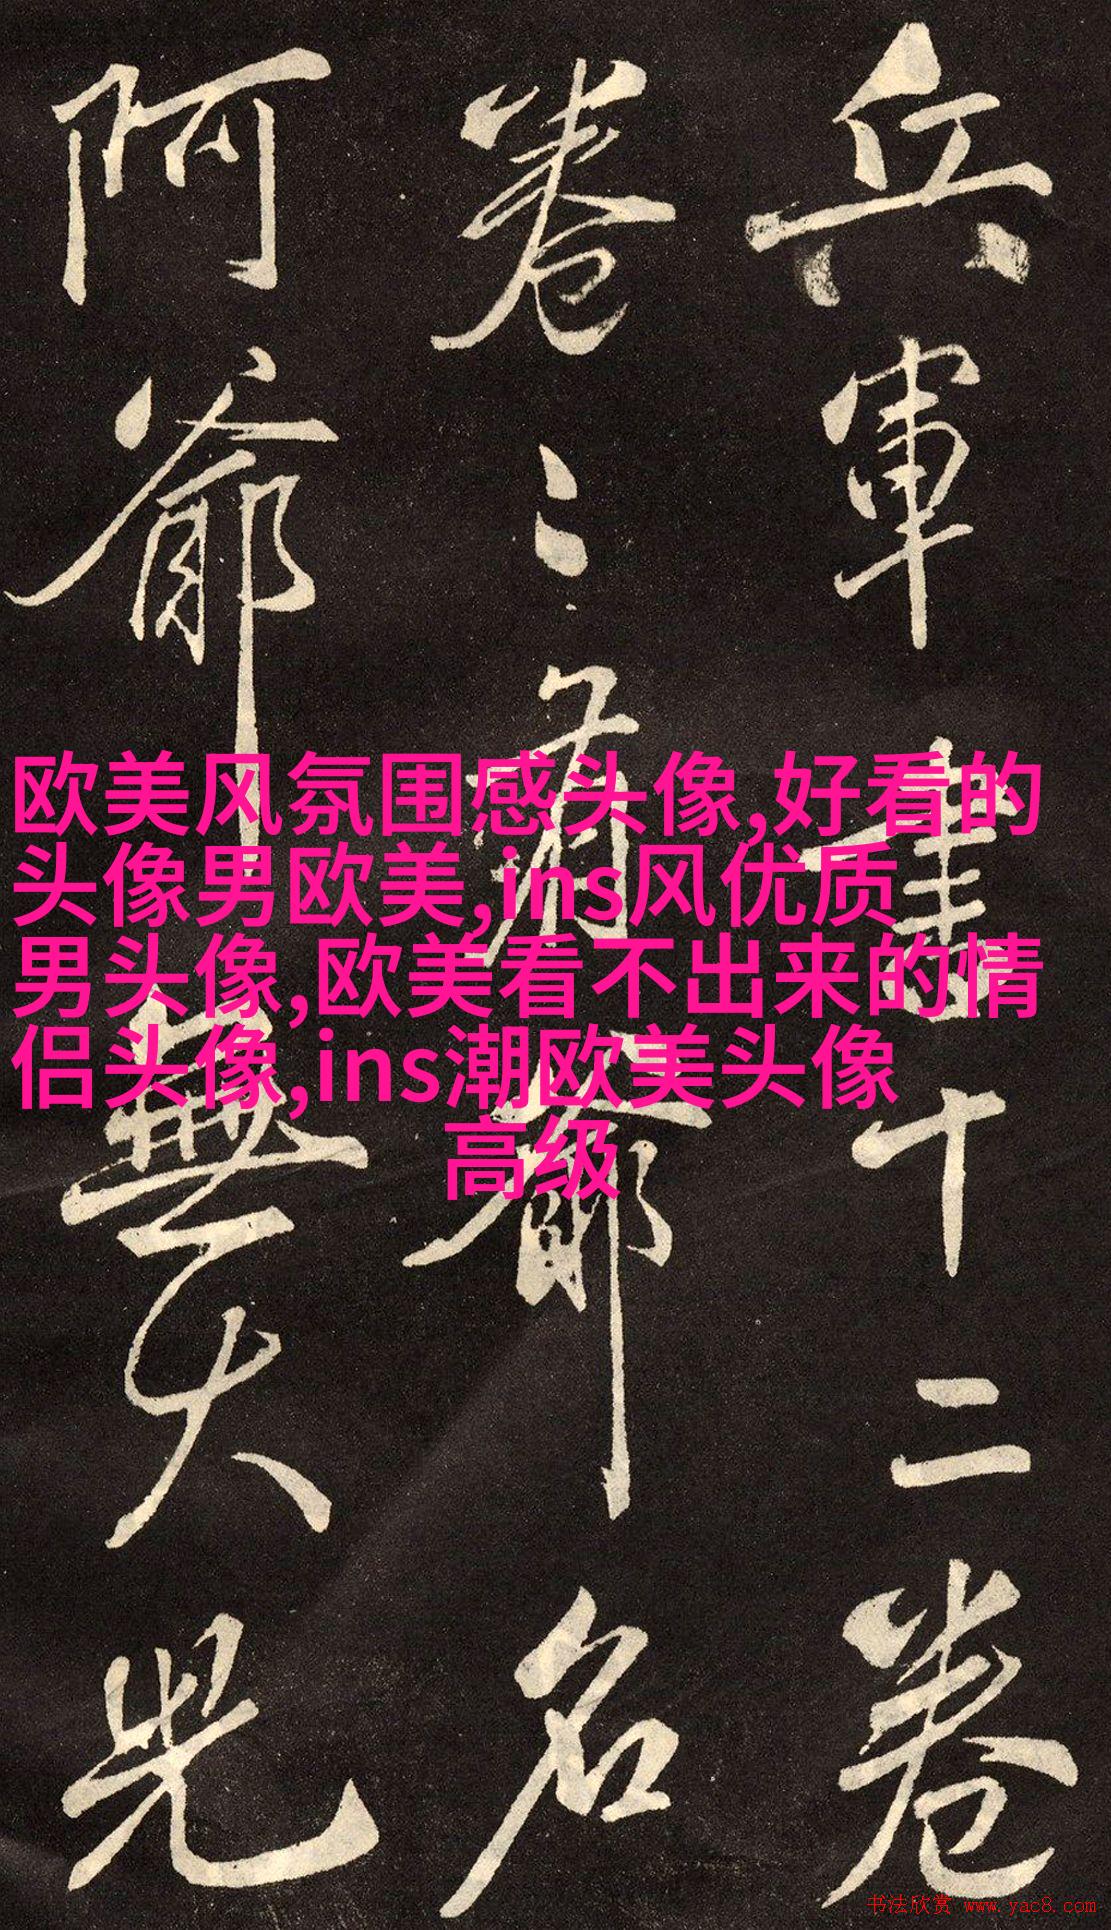 兵軍書十二卷
卷卷有爺名
阿爺無大兒
欧美风氛围感头像,好看的
头像男欧美,ins风优质
男头像,欧美看不出来的情
侣头像,ins潮欧美头像
高级
书法欣赏 www.yac8.com